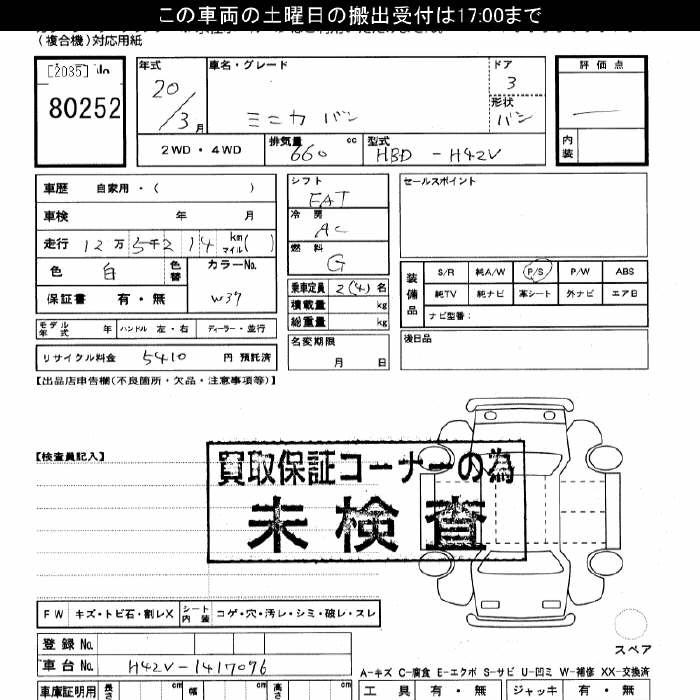 この車両の土曜日の搬出受付は17:00まで
(複合機)対応用紙
[2035]
80252
年式
20/3月
車名・グレード
ミニカ バン
ドア
3
形状
バン
評価点
内装
2WD・4WD
排気量
660 cc
型式
HBD-H42V
車歴 自家用・( )
車検 年 月
走行 12万5千214 km マイル( )
色 白 色替
カラーNo.
W37
保証書 有・無
シフト
FAT
冷房
AC
燃料
G
乗車定員 2(4)名
積載量 kg
総重量 kg
名変期限
月 日
セールスポイント
装備品
S/R 純A/W P/S P/W ABS
純TV 純ナビ 革シート 外ナビ エアB
ナビ型番:
後日品
モデル年式 年 ハンドル 左・右 ディーラー・並行
リサイクル料金 5410 円 預託済
【出品店申告欄(不良箇所・欠品・注意事項等)】
【検査員記入】
買取保証コーナーの為
未検査
FW キズ・トビ石・割レX シート内装 コゲ・穴・汚レ・シミ・破レ・スレ
スペア
登録No.
車台No. H42V-1417096
A-キズ C-腐食 E-エクボ S-サビ U-凹ミ W-補修 XX-交換済
車庫証明用 長さ cm 幅 cm 高さ cm
工具 有・無 ジャッキ 有・無